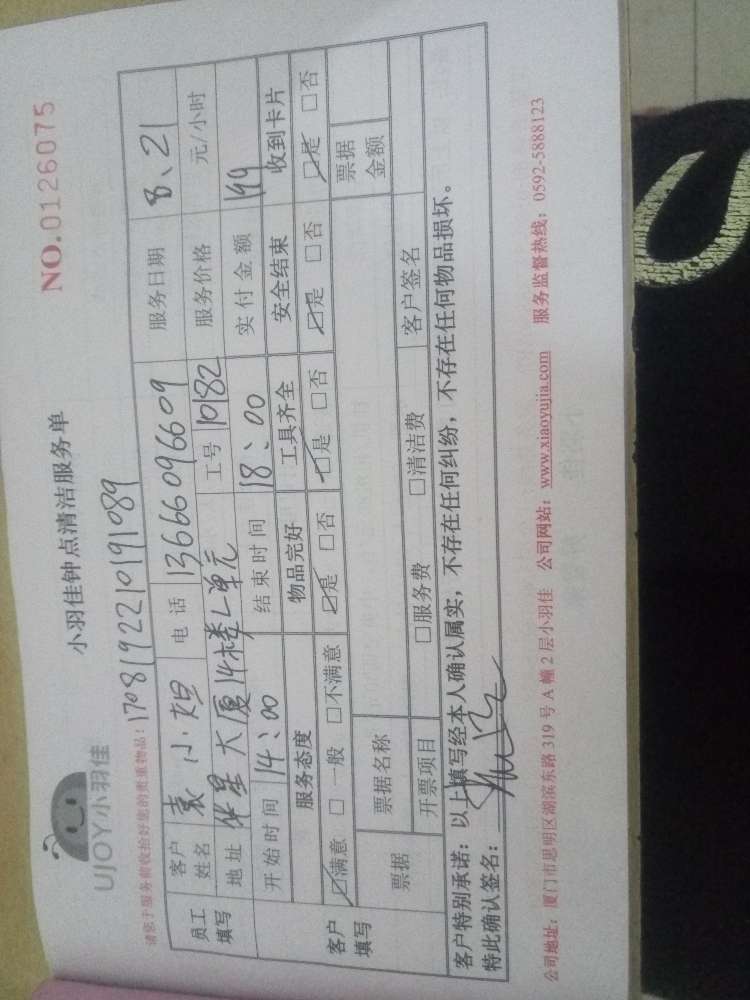 UJOY小羽佳
小羽佳钟点清洁服务单
NO.0126075
请您于服务前收拾好您的贵重物品！
1708192210191089
员工填写 客户姓名 袁小妲 电话 13666096609 服务日期 8、21
地址 华星大厦14楼L单元 工号 10182 服务价格 元/小时
开始时间 14：00 结束时间 18：00 实付金额 199
客户填写 服务态度 物品完好 工具齐全 安全结束 收到卡片
☑满意 □一般 □不满意 ☑是 □否 ☑是 □否 ☑是 □否 ☑是 □否
票据 票据名称 票据金额
开票项目 □服务费 □清洁费 客户签名
客户特别承诺：以上填写经本人确认属实，不存在任何纠纷，不存在任何物品损坏。
特此确认签名：
公司地址：厦门市思明区湖滨东路319号A幢2层小羽佳 公司网站：www.xiaoyujia.com 服务监督热线：0592-5888123